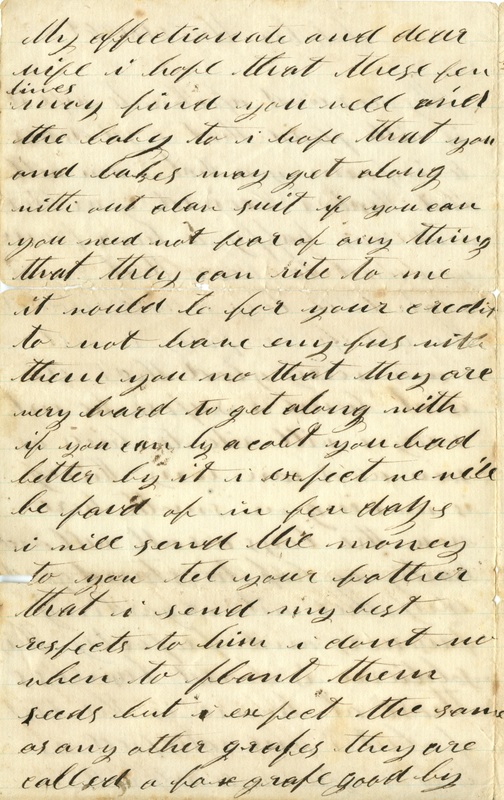 My affectionate and dear
wife i hope that these few
lines
may find you well and
the baby to i hope that you
and babes may get along
with out alan suit if you can
you need not fear of any thing
that they can rite to me
it would to for your credit
to not have eny fus with
them you no that they are
very hard to get along with
if you can by a colt you had
better by it i expect we will
be paid of in few days
i will send the money
to you tel your father
that i send my best
respects to him i dont no
when to plant them
seeds but i expect the same
as any other grapes they are
called a fox grape good by